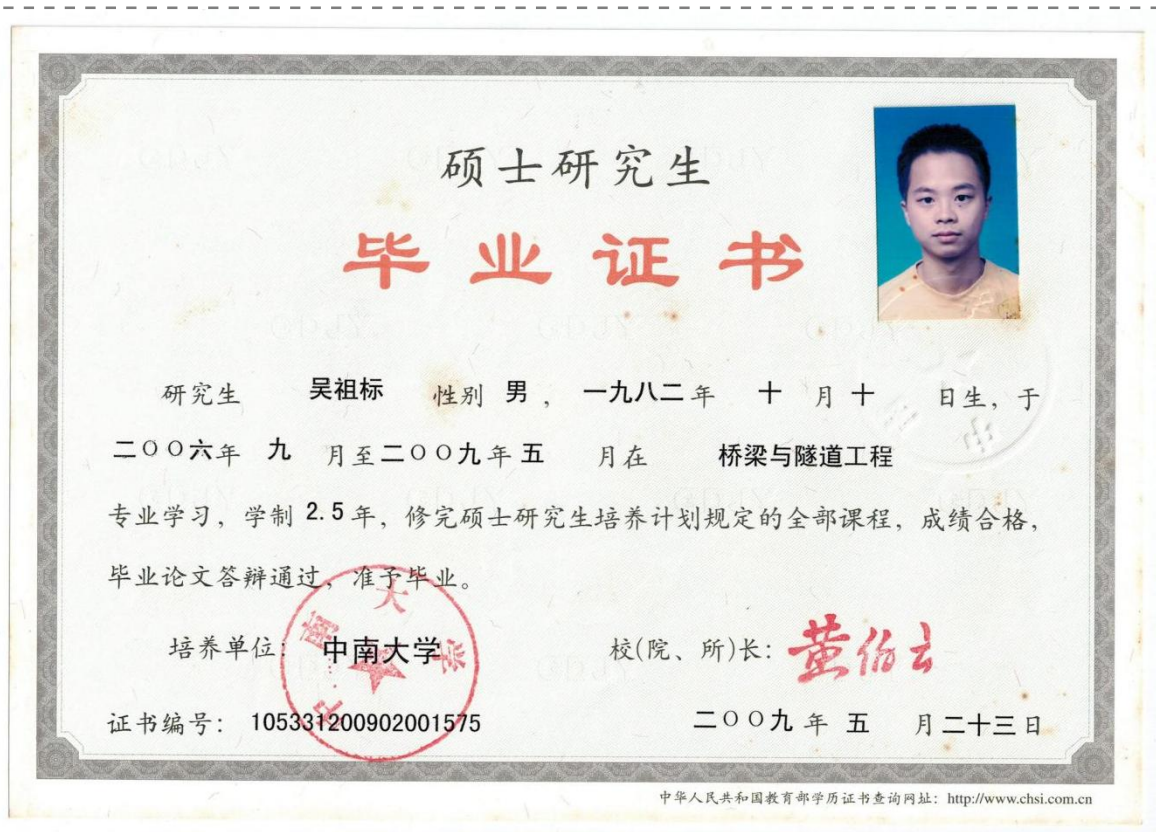 硕士研究生
毕业证书
研究生 吴祖标 性别 男 , 一九八二年 十 月 十 日生, 于
二〇〇六年 九 月至二〇〇九年 五 月在 桥梁与隧道工程
专业学习, 学制 2.5 年, 修完硕士研究生培养计划规定的全部课程, 成绩合格,
毕业论文答辩通过, 准予毕业。
培养单位: 中南大学 校(院、所)长: 黄伯云
中南大学
证书编号: 105331200902001575 二〇〇九 年 五 月 二十三 日
中华人民共和国教育部学历证书查询网址: http://www.chsi.com.cn